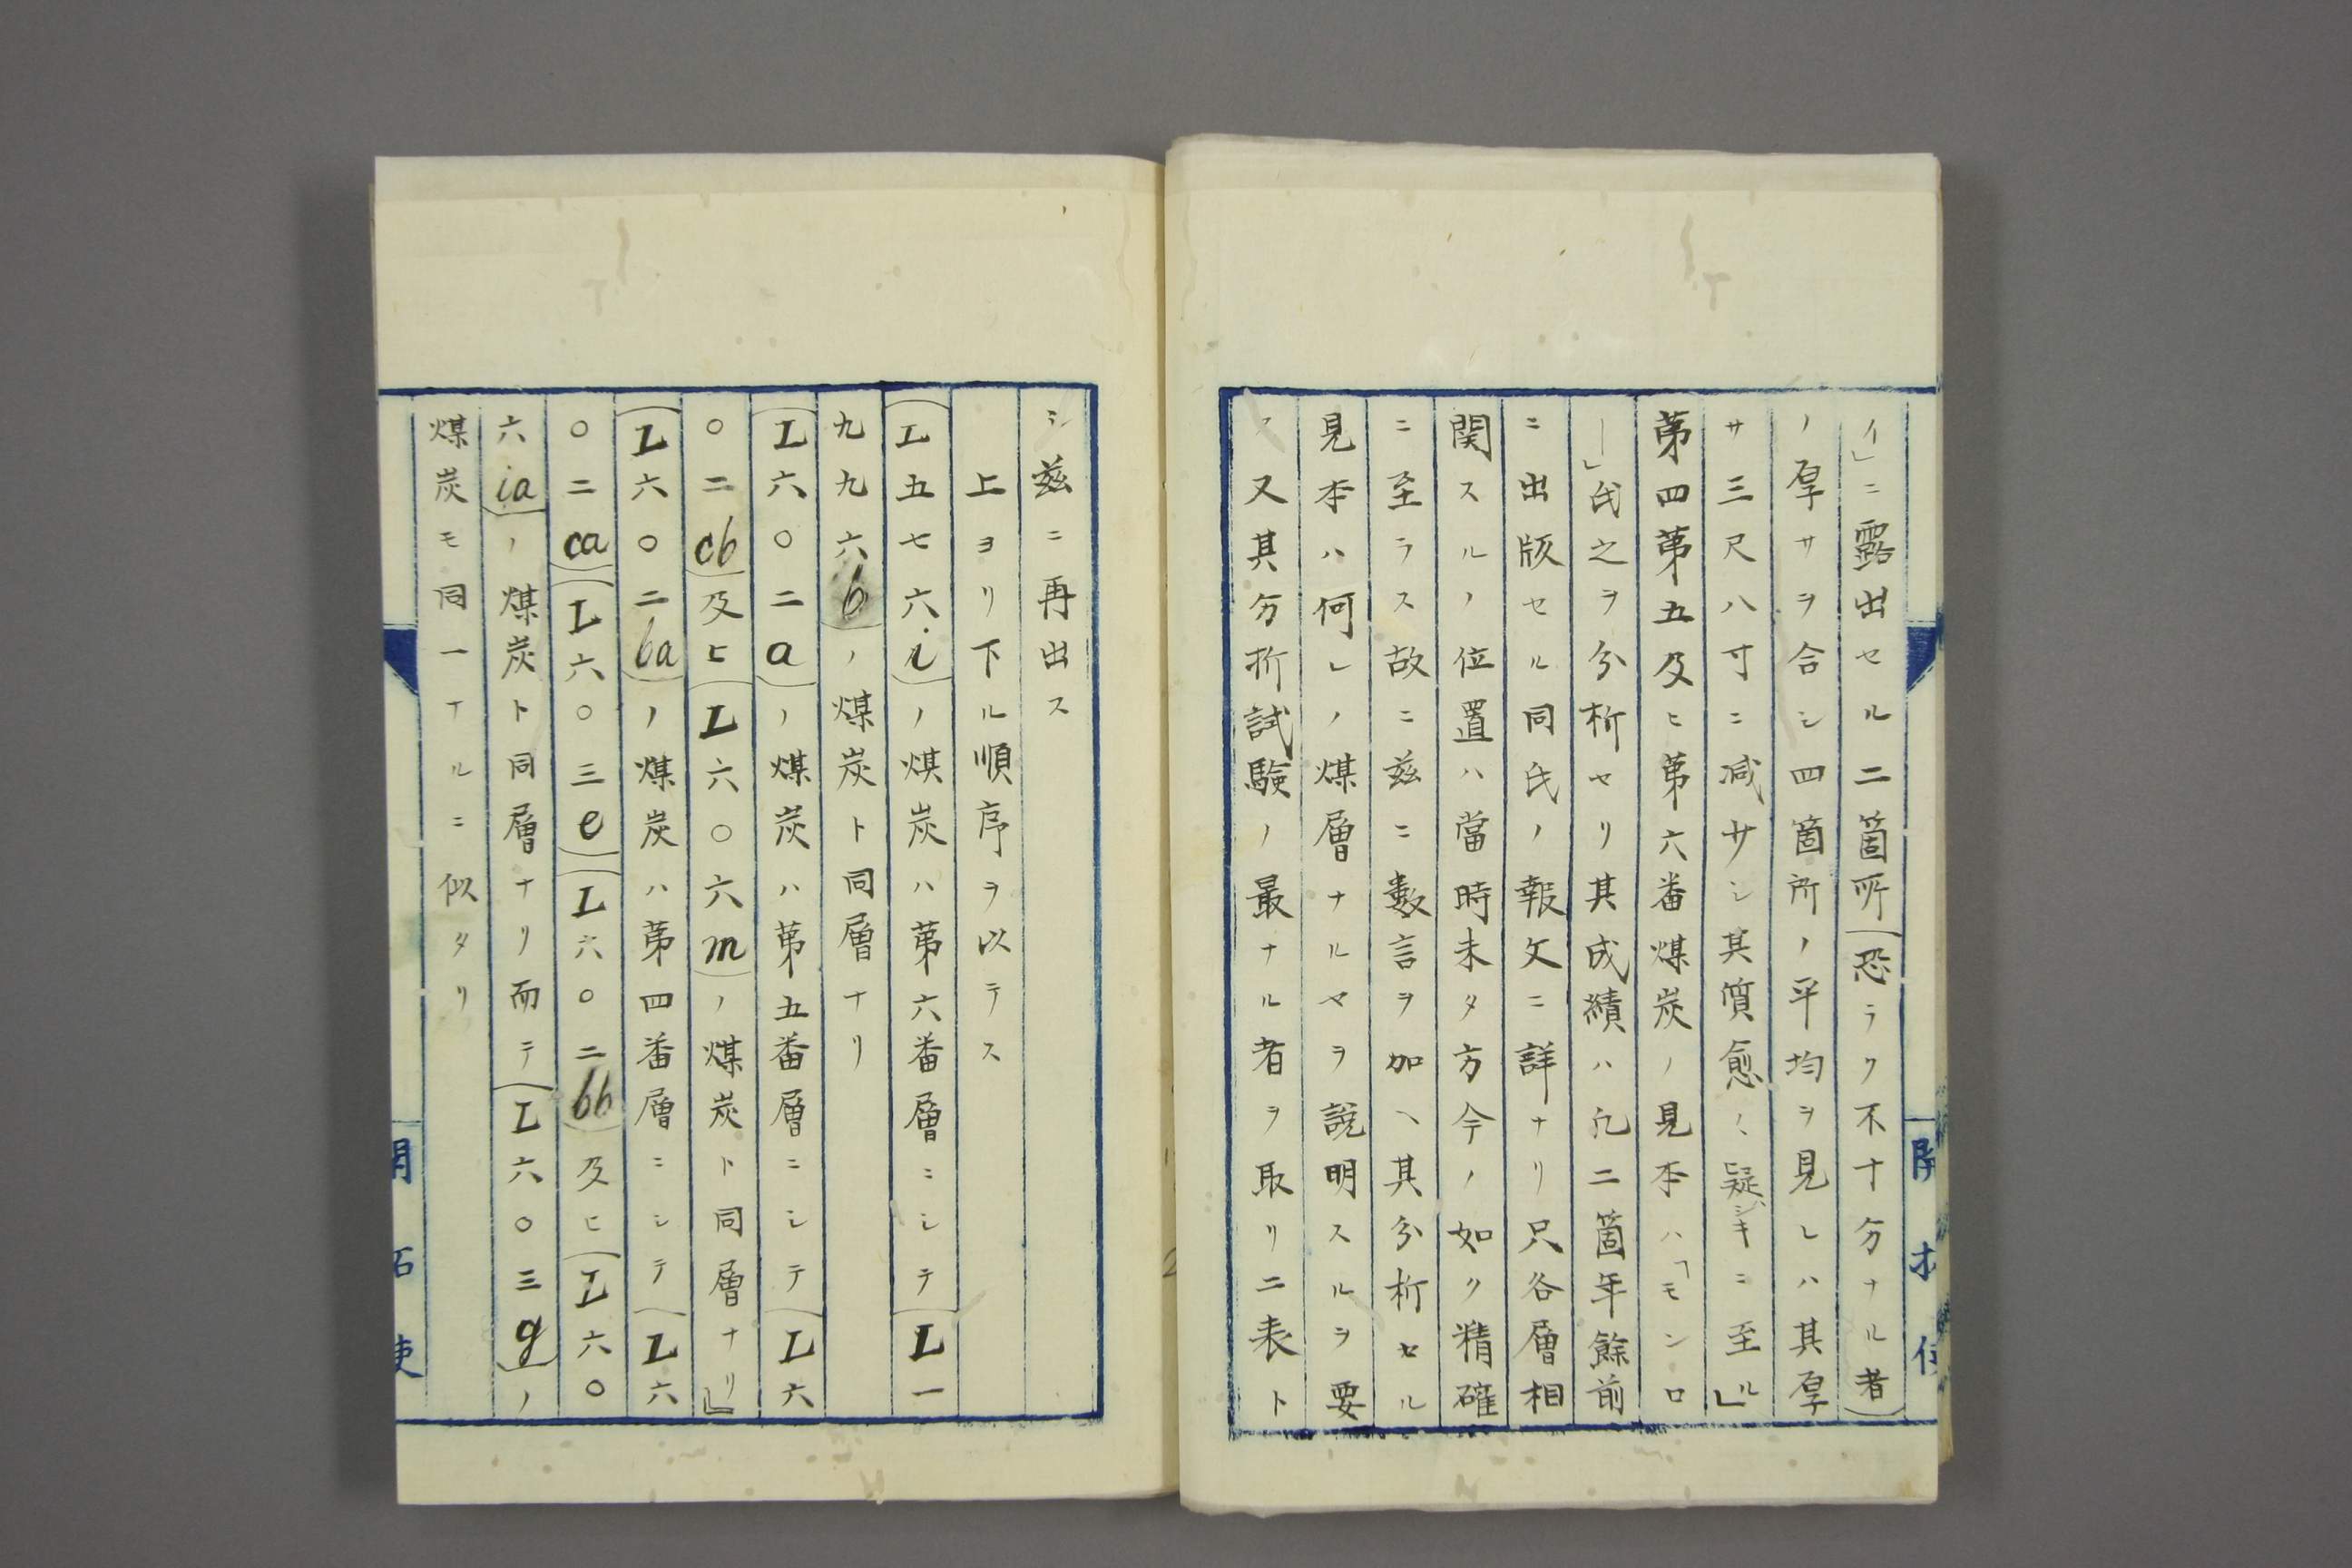 イ」ニ露出セル二箇所(恐ラク不十分ナル者)
ノ厚サヲ合シ四箇所ノ平均ヲ見レハ其厚
サ三尺八寸ニ减サシ其質愈〻疑シキニ至ル」
第四第五及ヒ第六番煤炭ノ見本ハ「モンロ
ー」氏之ヲ分析セリ其成績ハ凡二箇年餘前
ニ出版セル同氏ノ報文ニ詳ナリ只各層相
関スルノ位置ハ當時未タ方今ノ如ク精確
ニ至ラス故ニ茲ニ數言ヲ加ヘ其分析セル
見本ハ何レノ煤層ナルヤヲ説明スルヲ要
ス又其分析試験ノ最ナル者ヲ取リ二表ト
シ茲ニ再出ス
上ヨリ下ル順序ヲ以テス
(L五七六i)ノ煤炭ハ第六番層ニシテ(L一
九九六b)ノ煤炭ト同層ナリ
(L六〇二a)ノ煤炭ハ第五番層ニシテ(L六
〇二cb)及ヒ(L六〇六m)ノ煤炭ト同層ナリ」
(L六〇二ba)ノ煤炭ハ第四番層ニシテ(L六
〇二ca)(L六〇三e)(L六〇二bb)及ヒ(L六〇
六ia)ノ煤炭ト同層ナリ而テ(L六〇三g)ノ
煤炭モ同一ナルニ似タリ
開拓使